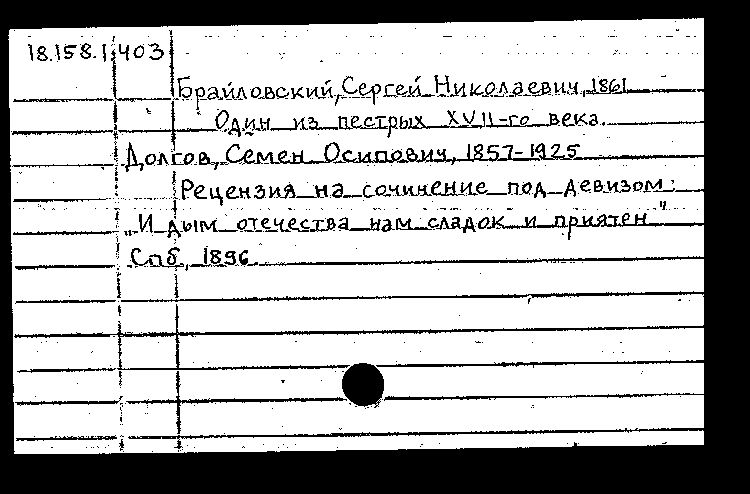 18.158.1.403
Брайловский, Сергей Николаевич, 1861
Один из пестрых XVII-го века.
Долгов, Семен Осипович, 1857-1925
Рецензия на сочинение под девизом:
„И дым отечества нам сладок и приятен"
Спб, 1896.